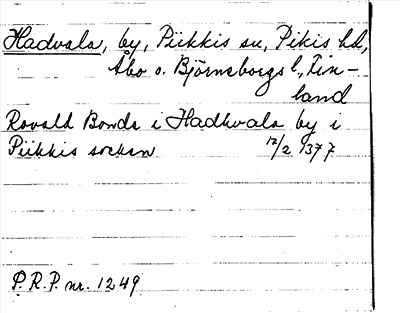 Hadvala, by, Piikkis sn, Pikis hd,
Åbo o. Björneborgs l., Fin-
land
Rovald Bonde i Hadhvala by i
Piikkis socken 12/2 1377
P.R.P. nr. 1249